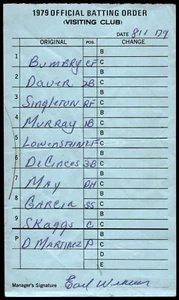 1979 OFFICIAL BATTING ORDER
(VISITING CLUB)
DATE 8/1 179
ORIGINAL POS. CHANGE
1 BUMBRY CF C
2 DAUER 2B C
3 SINGLETON RF C
4 MURRAY 1B C
5 LOWENSTEIN LF C
6 DECINCES 3B C
7 MAY DH C
8 GARCIA SS C
9 SKAGGS C C
P D. MARTINEZ P C
Manager's Signature Earl Weaver